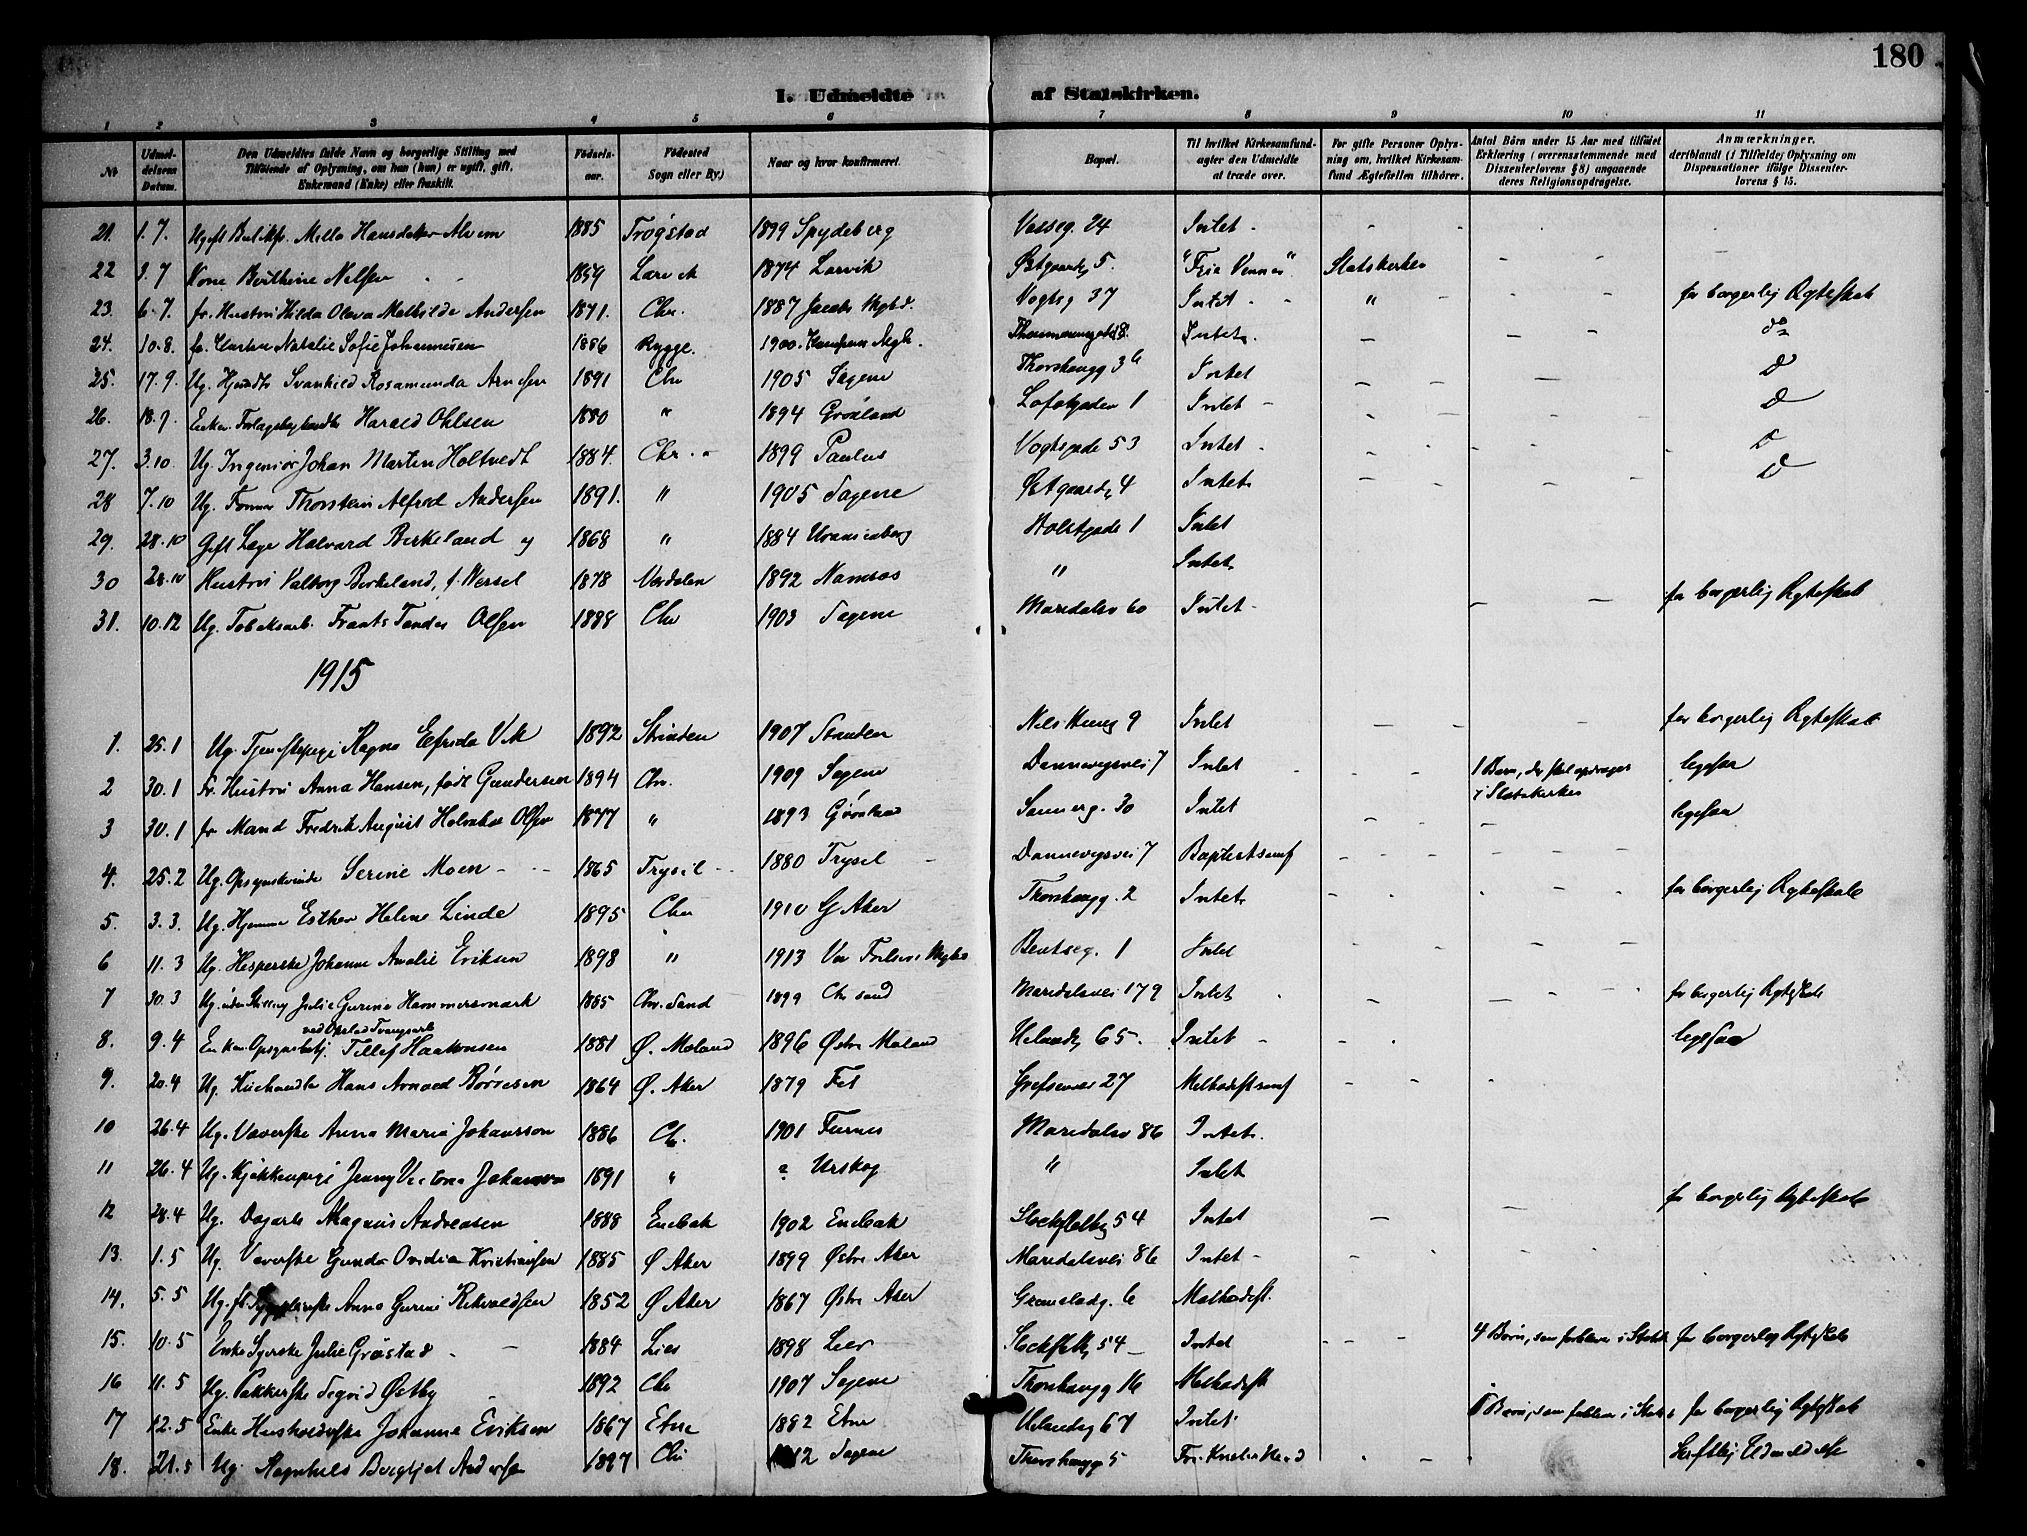 180
I. Udmeldte af Statskirken.
1 2 3 4 5 6 7 8 9 10 11
№
Udmel-
delsens
Datum.
Den Udmeldtes fulde Navn og borgerlige Stilling med
Tilføiende af Oplysning, om han (hun) er ugift, gift,
Enkemand (Enke) eller fraskilt.
Fødsels-
aar.
Fødested
Sogn eller By.)
Naar og hvor konfirmeret.
Bopæl.
Til hvilket Kirkesamfund
agter den Udmeldte
at træde over.
For gifte Personer Oplys-
ning om, hvilket Kirkesam-
fund Ægtefællen tilhører.
Antal Børn under 15 Aar med tilføiet
Erklæring (overensstemmende med
Dissenterlovens § 8) angaaende
deres Religionsopdragelse.
Anmærkninger,
deriblandt (i Tilfælde) Oplysning om
Dispensationer ifølge Dissenter-
lovens § 15.
21. 1.7. Milla Hansdatter Alvim 1885 Trøgstad 1899 Spydeberg 24 Intet
22 3.7 Kone Berthine Nelsen 1859 Larvik 1874 Larvik Østgaardg 5. "Frie Venner" Statskirken
23. 6.7. fr. Hustru Hilda Olava Mathilde Andersen 1871. Chr. 1887 Jacobs Vogtsg 37 Intet " for borgerlig Ægteskab
24. 10.8. Natalie Sofie Johannesen 1886 Rygge. 1900. Intet. do
25. 17.9. Ug. Svanhild Rosamunda Arnesen 1891 Chr 1905 Sagene Thorshaugg 3 b Intet d
26. 18.9. Harald Ohlsen 1880 " 1894 Grønland Lofotgaden 1 Intet d
27. 3.10. Ug. Ingeniør Johan Martin Holtvedt 1884. Chr. 1899 Paulus Vogtsgade 53 Intet d
28 7.10 Ug. Thorstein Alfred Andersen 1891. " 1905 Sagene Østgaardg 4 Intet d
29. 28.10 Gift Læge Halvard Birkeland og 1868 " 1884 Uranienborg Holstgade 1 Intet
30 28.10 Hustru Valborg Birkeland, f. Wessel 1878 Verdalen 1892 Namsos " Intet
31. 10.12 Ug. Tobaksarb. Frants Olsen 1888 Chr 1903 Sagene Maridalsv 60 Intet for borgerlig Ægteskab
1915
1. 25.1 Ug. Tjenestepige Ragna Elfrida Vik 1892 Strinden 1907 Strinden 9 Intet for borgerlig Ægteskab
2 30.1 Fr. Hustru Anna Hansen, født Gundersen 1894 Chr. 1909 Sagene Dannevigsvei 7 Intet 1 Barn, der skal opdrages ligesaa
i Statskirken
3 30.1 fr Mand Fredrik August Olsen 1877 " 1893 Grønland 30 Intet ligesaa
4. 25.2 Ug. Serine Moen 1865 Trysil 1880 Trysil Dannevigsvei 7 Baptistsamf
5. 3.3. Ug. Esther Helene Linde 1895 Chr 1910 G Aker Thorshaugg. 2 Intet for borgerlig Ægteskab
6 11.3 Ug. Hesperske Johanne Amalie Eriksen 1898 " 1913 Bentseg. 1 Intet
7 30.3 Ug. uden Stilling Julie Gurine Hammersmark 1885 Chr.sand 1899 Chr sand Maridalsvei 179 Intet for borgerlig Ægteskab
8. 9.4 Tellef Haakonsen 1881 Ø. Moland 1896 Østre Moland Uelandsg 65. Intet ligesaa
9. 20.4 Ug. Hans Arnold Børresen 1864 Ø. Aker 1879 Fet Grefsenvei 27 Methodistsamf
10 26.4 Ug. Væverske Anna Maria Johansson 1886 Ch. 1901 Furnes Maridalsv 86 Intet.
11 26.4 Ug. Kjøkkenpige Jenny Johansson 1891 " Urskog " Intet
12 28.4 Ug. Dagarb Magnus Andreasen 1888 Enebak 1902 Enebak 54 Intet for borgerlig Ægteskab
13. 1.5 Ug. Væverske Gunda Ovidia Kristiansen 1885 Ø Aker 1899 Østre Aker Maridalsvei 86 Intet
14. 5.5 Ug. Anna Gurine 1852 Ø Aker 1867 Østre Aker 6 Methodist.
15. 10.5 Enke Syerske Julie Grøstad 1884 Lier 1898 Lier 54 Intet 4 Børn, som forbliver i Statsk for borgerlig Ægteskab
16 11.5 Ug. Pakkerske Sigrid Østby 1892 Chr 1907 Sagene Thorshaugg 16 Methodist
17 12.5 Enke Johanne Eriksen 1867 Etne 1882 Etne Uelandsg 67 Intet Barn, som forbliver i Statsk for borgerlig Ægteskab
18. 21.5 Ug. Ragnhild Bergljot Andersen 1897 Chr 1912 Sagene Thorshaugg 5 Skriftlig Udmeldelse